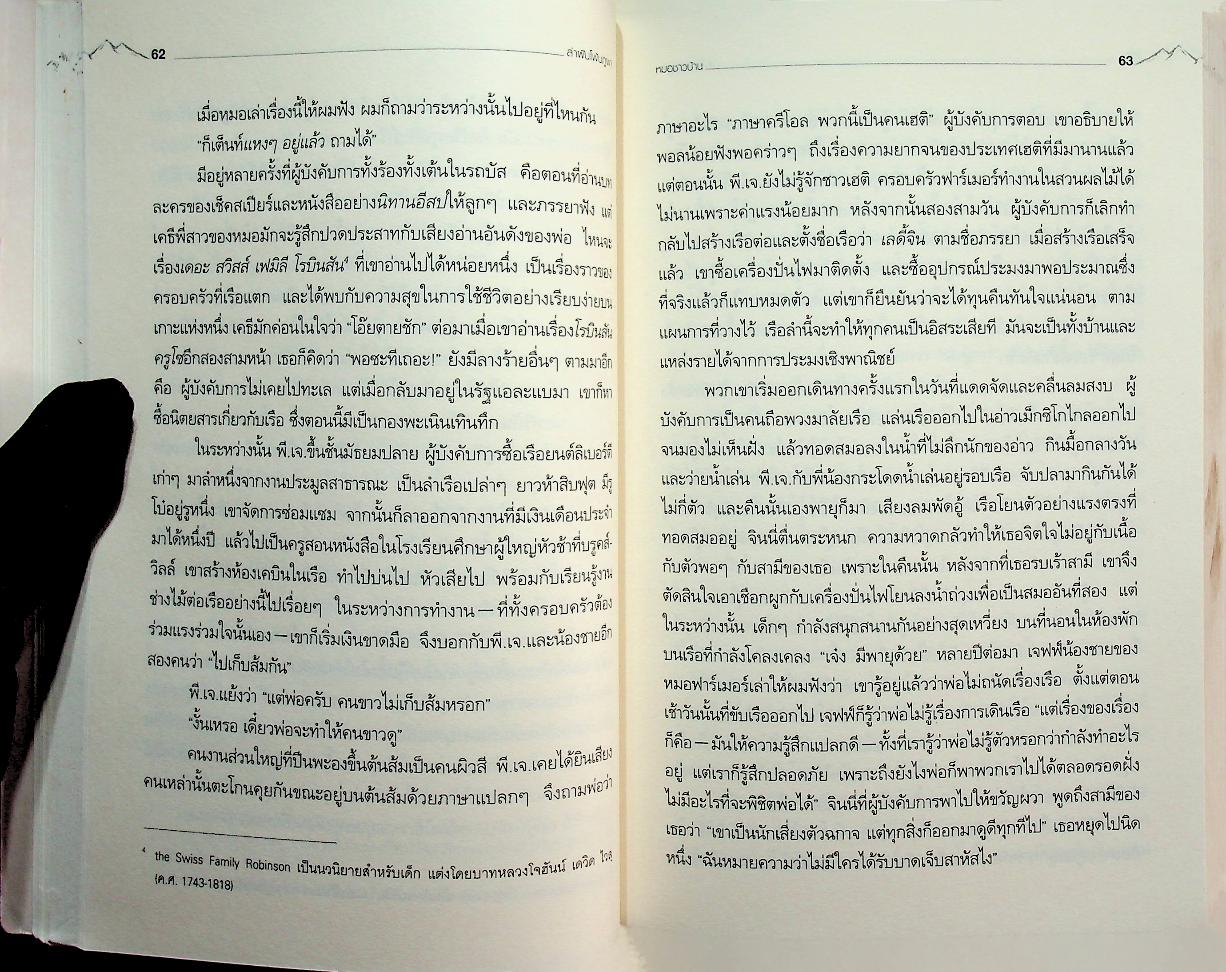 62
ลำเพ็ญในขุนเขา
เมื่อหมอเล่าเรื่องนี้ให้ผมฟัง ผมก็ถามว่าระหว่างนั้นไปอยู่ที่ไหนกัน
“ก็เต็นท์แหงๆ อยู่แล้ว ถามได้”
มีอยู่หลายครั้งที่ผู้บังคับการทั้งร้องทั้งเต้นในรถบัส คือตอนที่อ่านบท
ละครของเช็คสเปียร์และหนังสืออย่างนิทานอีสปให้ลูกๆ และภรรยาฟัง แต่
เคธีพี่สาวของหมอมักจะรู้สึกปวดประสาทกับเสียงอ่านอันดังของพ่อ ไหนจะ
เรื่องเดอะ สวิสส์ เฟมิลี โรบินสัน⁴ ที่เขาอ่านไปได้หน่อยหนึ่ง เป็นเรื่องราวของ
ครอบครัวที่เรือแตก และได้พบกับความสุขในการใช้ชีวิตอย่างเรียบง่ายบน
เกาะแห่งหนึ่ง เคธีมักค่อนในใจว่า “โอ๊ยตายชัก” ต่อมาเมื่อเขาอ่านเรื่องโรบินสัน
ครูโซอีกสองสามหน้า เธอก็คิดว่า “พอซะทีเถอะ!” ยังมีลางร้ายอื่นๆ ตามมาอีก
คือ ผู้บังคับการไม่เคยไปทะเล แต่เมื่อกลับมาอยู่ในรัฐแอละแบมา เขาก็หา
ซื้อนิตยสารเกี่ยวกับเรือ ซึ่งตอนนี้มีเป็นกองพะเนินเทินทึก
ในระหว่างนั้น พี.เจ.ขึ้นชั้นมัธยมปลาย ผู้บังคับการซื้อเรือยนต์ลิเบอร์ตี
เก่าๆ มาลำหนึ่งจากงานประมูลสาธารณะ เป็นลำเรือเปล่าๆ ยาวห้าสิบฟุต มีรู
โบ๋อยู่รูหนึ่ง เขาจัดการซ่อมแซม จากนั้นก็ลาออกจากงานที่มีเงินเดือนประจำ
มาได้หนึ่งปี แล้วไปเป็นครูสอนหนังสือในโรงเรียนศึกษาผู้ใหญ่หัวช้าที่บรูคส์-
วิลล์ เขาสร้างห้องเคบินในเรือ ทำไปบ่นไป หัวเสียไป พร้อมกับเรียนรู้งาน
ช่างไม้ต่อเรืออย่างนี้ไปเรื่อยๆ ในระหว่างการทำงาน — ที่ทั้งครอบครัวต้อง
ร่วมแรงร่วมใจนั้นเอง — เขาก็เริ่มเงินขาดมือ จึงบอกกับพี.เจ.และน้องชายอีก
สองคนว่า “ไปเก็บส้มกัน”
พี.เจ.แย้งว่า “แต่พ่อครับ คนขาวไม่เก็บส้มหรอก”
“งั้นเหรอ เดี๋ยวพ่อจะทำให้คนขาวดู”
คนงานส่วนใหญ่ที่ปีนพะองขึ้นต้นส้มเป็นคนผิวสี พี.เจ.เคยได้ยินเสียง
คนเหล่านั้นตะโกนคุยกันขณะอยู่บนต้นส้มด้วยภาษาแปลกๆ จึงถามพ่อว่า
⁴ the Swiss Family Robinson เป็นนวนิยายสำหรับเด็ก แต่งโดยบาทหลวงโจฮันน์ เดวิด ไวส์
(ค.ศ. 1743-1818)
หมอชาวบ้าน
63
ภาษาอะไร “ภาษาครีโอล พวกนี้เป็นคนเฮติ” ผู้บังคับการตอบ เขาอธิบายให้
พอลน้อยฟังพอคร่าวๆ ถึงเรื่องความยากจนของประเทศเฮติที่มีมานานแล้ว
แต่ตอนนั้น พี.เจ.ยังไม่รู้จักชาวเฮติ ครอบครัวฟาร์เมอร์ทำงานในสวนผลไม้ได้
ไม่นานเพราะค่าแรงน้อยมาก หลังจากนั้นสองสามวัน ผู้บังคับการก็เลิกทำ
กลับไปสร้างเรือต่อและตั้งชื่อเรือว่า เลดี้จิน ตามชื่อภรรยา เมื่อสร้างเรือเสร็จ
แล้ว เขาซื้อเครื่องปั่นไฟมาติดตั้ง และซื้ออุปกรณ์ประมงมาพอประมาณซึ่ง
ที่จริงแล้วก็แทบหมดตัว แต่เขาก็ยืนยันว่าจะได้ทุนคืนทันใจแน่นอน ตาม
แผนการที่วางไว้ เรือลำนี้จะทำให้ทุกคนเป็นอิสระเสียที มันจะเป็นทั้งบ้านและ
แหล่งรายได้จากการประมงเชิงพาณิชย์
พวกเขาเริ่มออกเดินทางครั้งแรกในวันที่แดดจัดและคลื่นลมสงบ ผู้
บังคับการเป็นคนถือพวงมาลัยเรือ แล่นเรือออกไปในอ่าวเม็กซิโกไกลออกไป
จนมองไม่เห็นฝั่ง แล้วทอดสมอลงในน้ำที่ไม่ลึกนักของอ่าว กินมื้อกลางวัน
และว่ายน้ำเล่น พี.เจ.กับพี่น้องกระโดดน้ำเล่นอยู่รอบเรือ จับปลามากินกันได้
ไม่กี่ตัว และคืนนั้นเองพายุก็มา เสียงลมพัดอู้ เรือโยนตัวอย่างแรงตรงที่
ทอดสมออยู่ จินนี่ตื่นตระหนก ความหวาดกลัวทำให้เธอจิตใจไม่อยู่กับเนื้อ
กับตัวพอๆ กับสามีของเธอ เพราะในคืนนั้น หลังจากที่เธอรบเร้าสามี เขาจึง
ตัดสินใจเอาเชือกผูกกับเครื่องปั่นไฟโยนลงน้ำถ่วงเพื่อเป็นสมออันที่สอง แต่
ในระหว่างนั้น เด็กๆ กำลังสนุกสนานกันอย่างสุดเหวี่ยง บนที่นอนในห้องพัก
บนเรือที่กำลังโคลงเคลง “เจ๋ง มีพายุด้วย” หลายปีต่อมา เจฟฟ์น้องชายของ
หมอฟาร์เมอร์เล่าให้ผมฟังว่า เขารู้อยู่แล้วว่าพ่อไม่ถนัดเรื่องเรือ ตั้งแต่ตอน
เช้าวันนั้นที่ขับเรือออกไป เจฟฟ์ก็รู้ว่าพ่อไม่รู้เรื่องการเดินเรือ “แต่เรื่องของเรื่อง
ก็คือ — มันให้ความรู้สึกแปลกดี — ทั้งที่เรารู้ว่าพ่อไม่รู้ตัวหรอกว่ากำลังทำอะไร
อยู่ แต่เราก็รู้สึกปลอดภัย เพราะถึงยังไงพ่อก็พาพวกเราไปได้ตลอดรอดฝั่ง
ไม่มีอะไรที่จะพิชิตพ่อได้” จินนี่ที่ผู้บังคับการพาไปให้ขวัญผวา พูดถึงสามีของ
เธอว่า “เขาเป็นนักเสี่ยงตัวฉกาจ แต่ทุกสิ่งก็ออกมาดูดีทุกทีไป” เธอหยุดไปนิด
หนึ่ง “ฉันหมายความว่าไม่มีใครได้รับบาดเจ็บสาหัสไง”